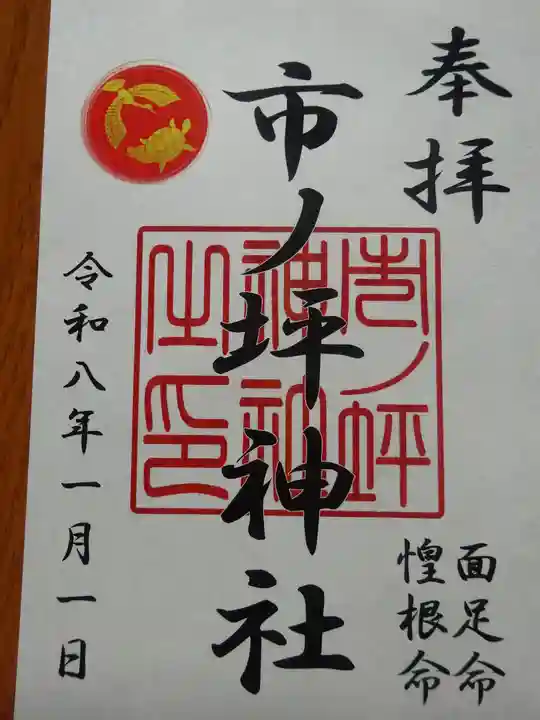 奉拝
面足命
惶根命
市ノ坪神社
市ノ坪
神社
之印
令和八年一月一日